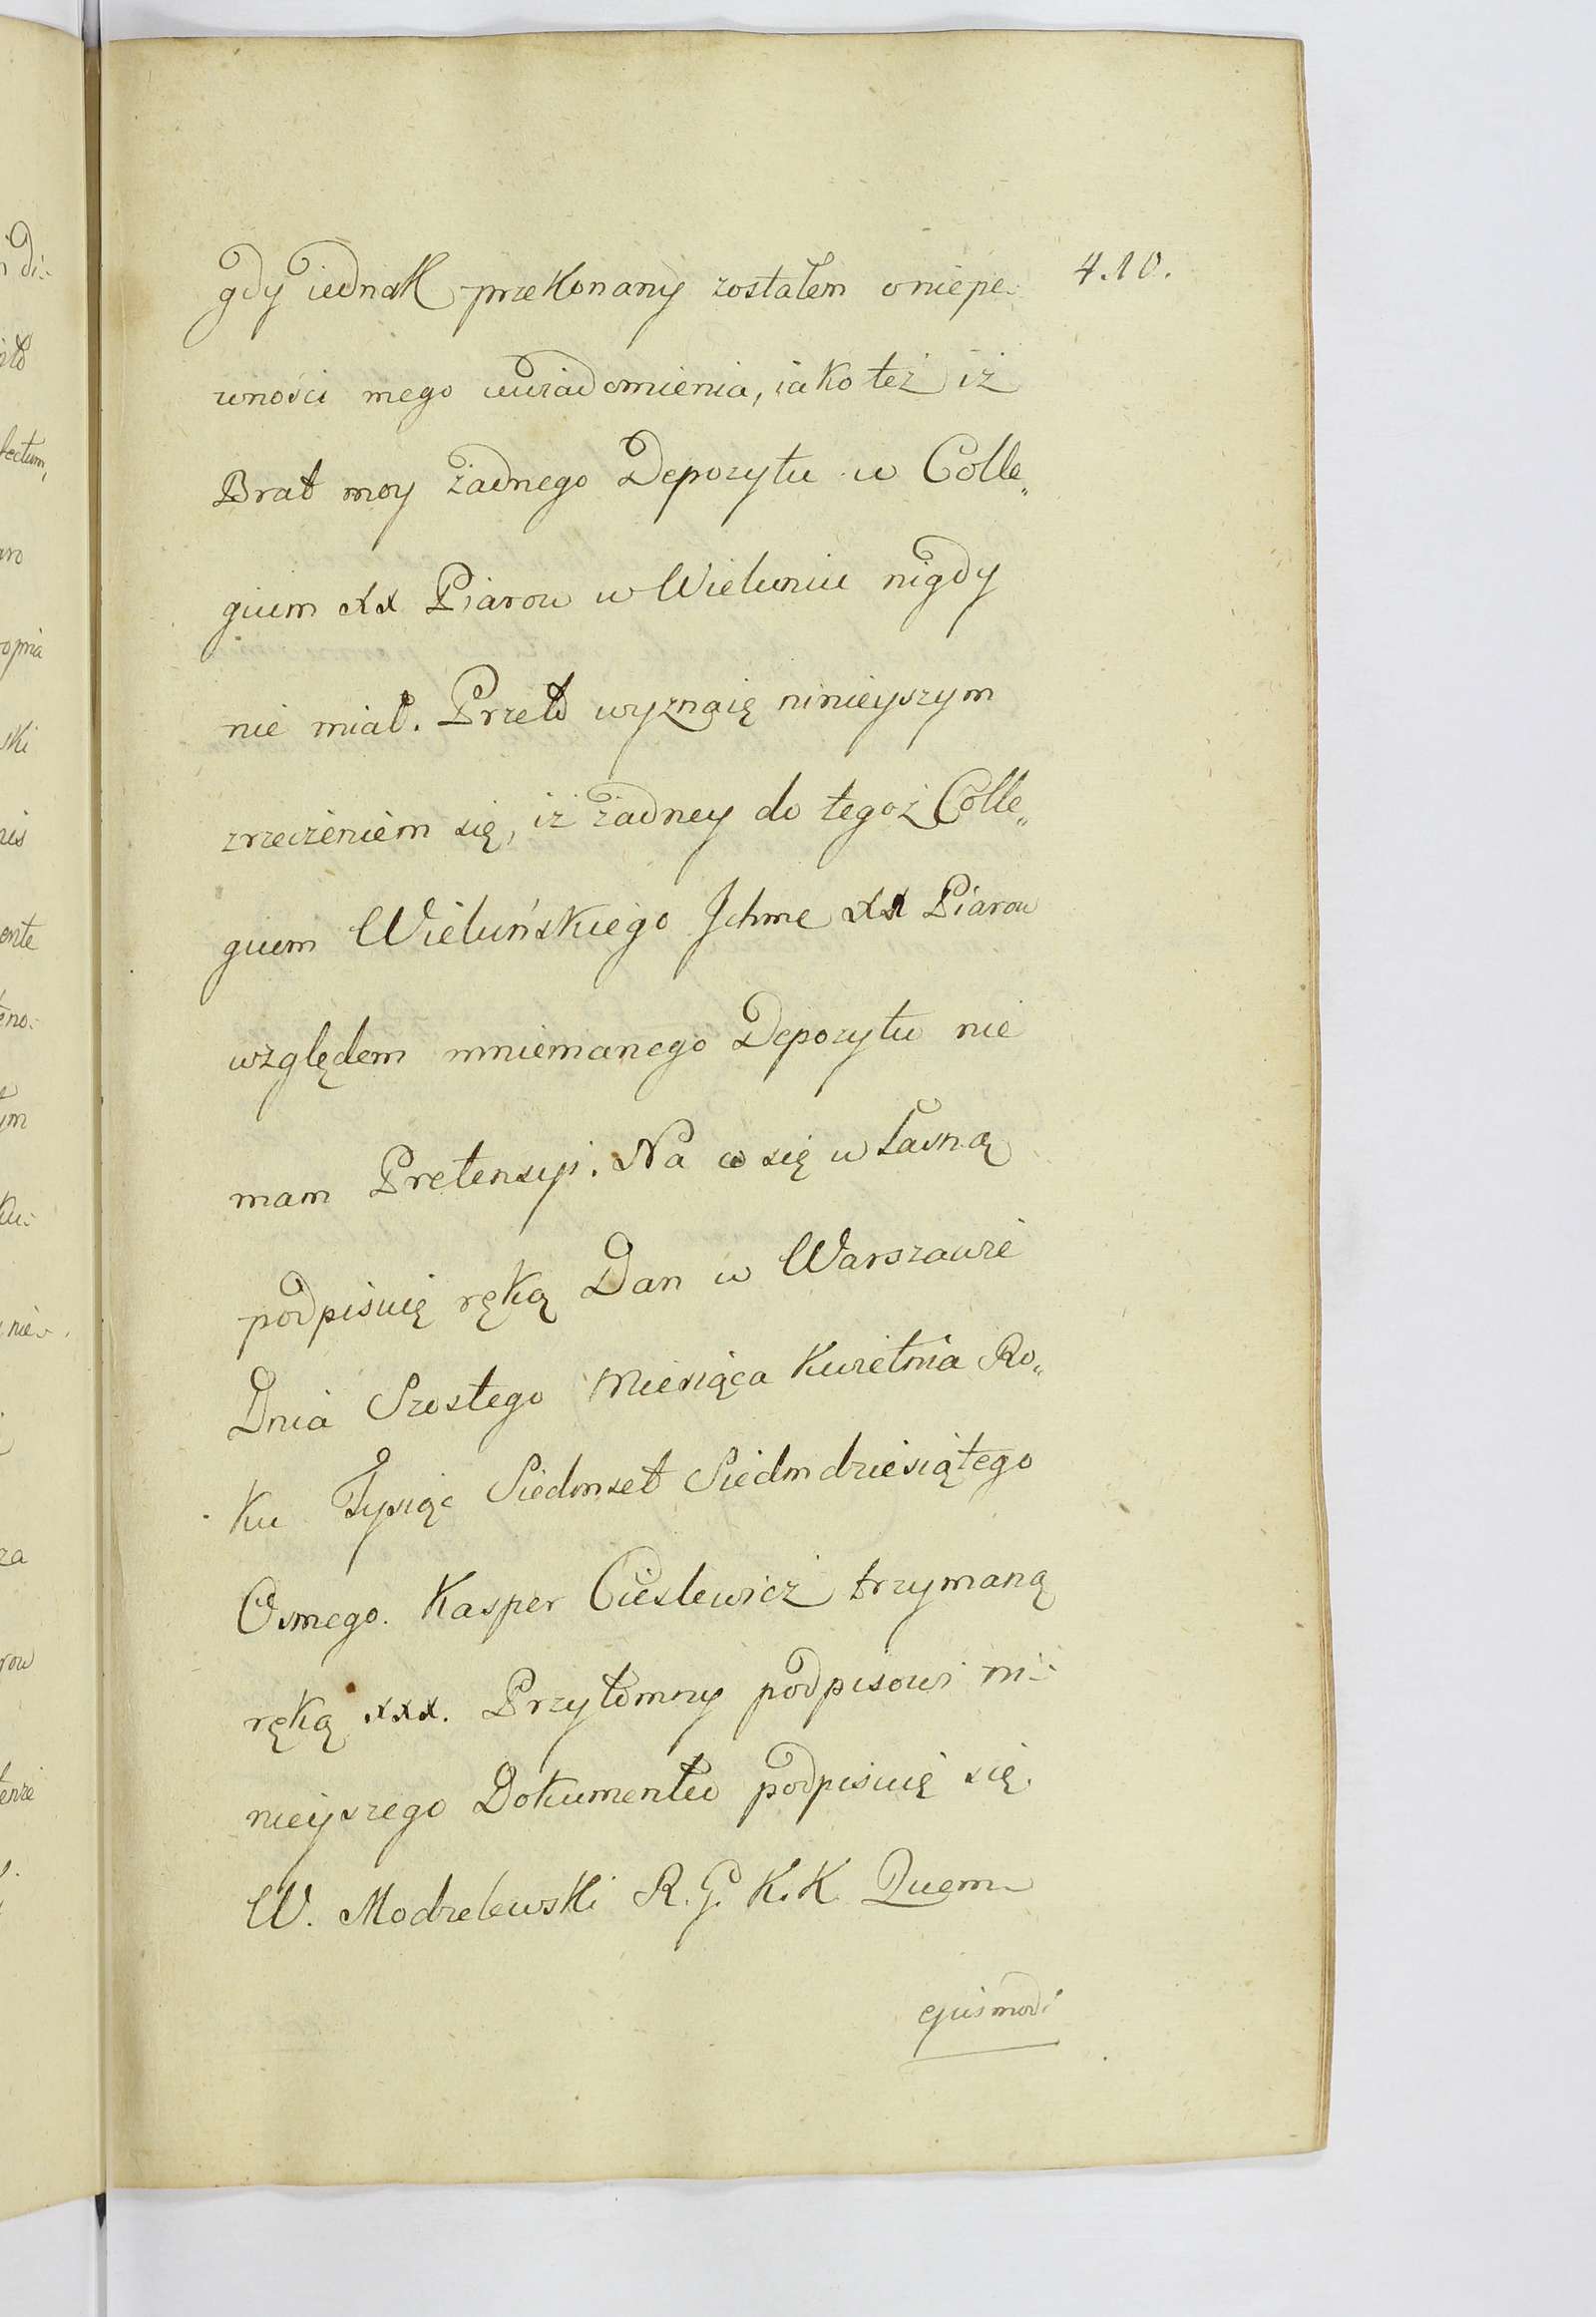 4.10.
gdy iednak przekonany zostałem o niepe-
wności mego uwiadomienia, iako też iż
Brat moy żadnego Depozytu w Colle„
gium XX Piarow w Wieluniu nigdy
nie miał. Przeto wyznaię ninieyszym
zrzeczeniem się, iż żadney do tegoż Colle„
gium Wieluńskiego Ichme XX Piarow
względem mniemanego Depozytu nie
mam Pretensyi. Na co się własną
podpisuię ręką Dan w Warszawie
Dnia Szostego Miesiąca Kwietnia Ro„
ku Tysiąc Siedmset Siedmdziesiątego
Osmego. Kasper Cieslewicz trzymaną
ręką xxx. Przytomny podpisowi ni-
nieyszego Dokumentu podpisuię się.
W. Modzelewski R. G. K. K. Quem
ejusmodi